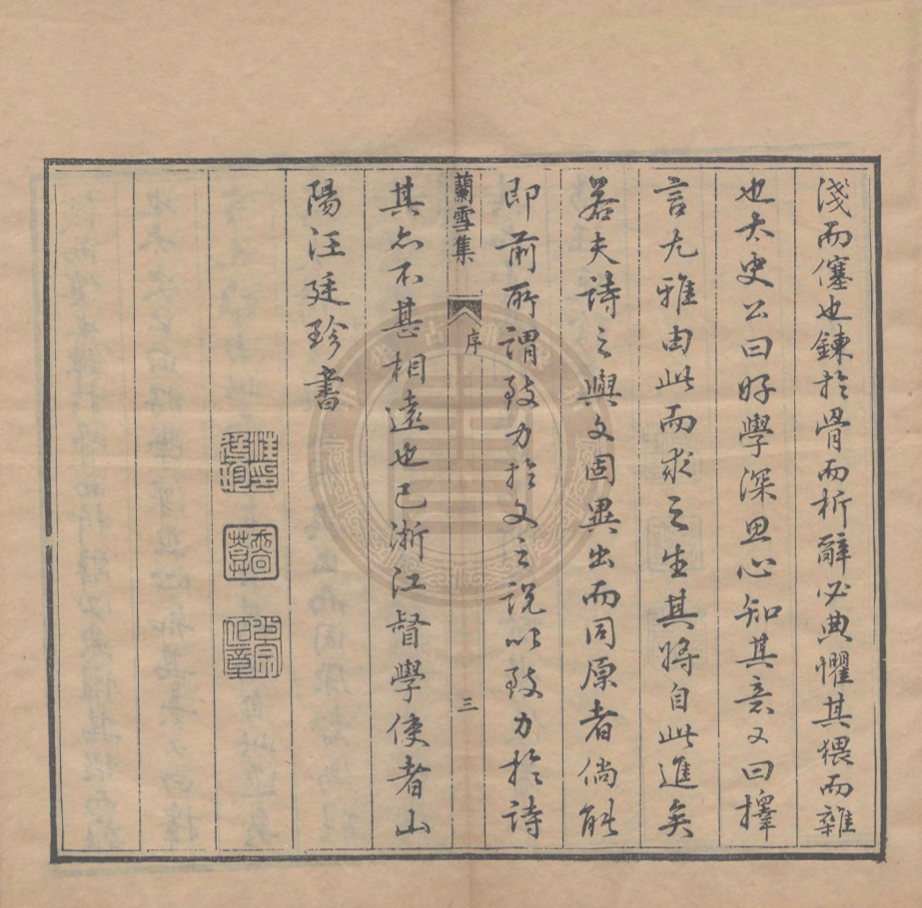 淺而僿也鍊於骨而析辭必典懼其猥而雜
也太史公曰好學深思心知其意又曰擇
言尤雅由此而求之生其將自此進矣
若夫詩之與文固異出而同原者倘能
即前所謂致力於文之說以致力於詩
蘭雪集
序
三
其亦不甚相遠也已浙江督學使者山
陽汪廷珍書